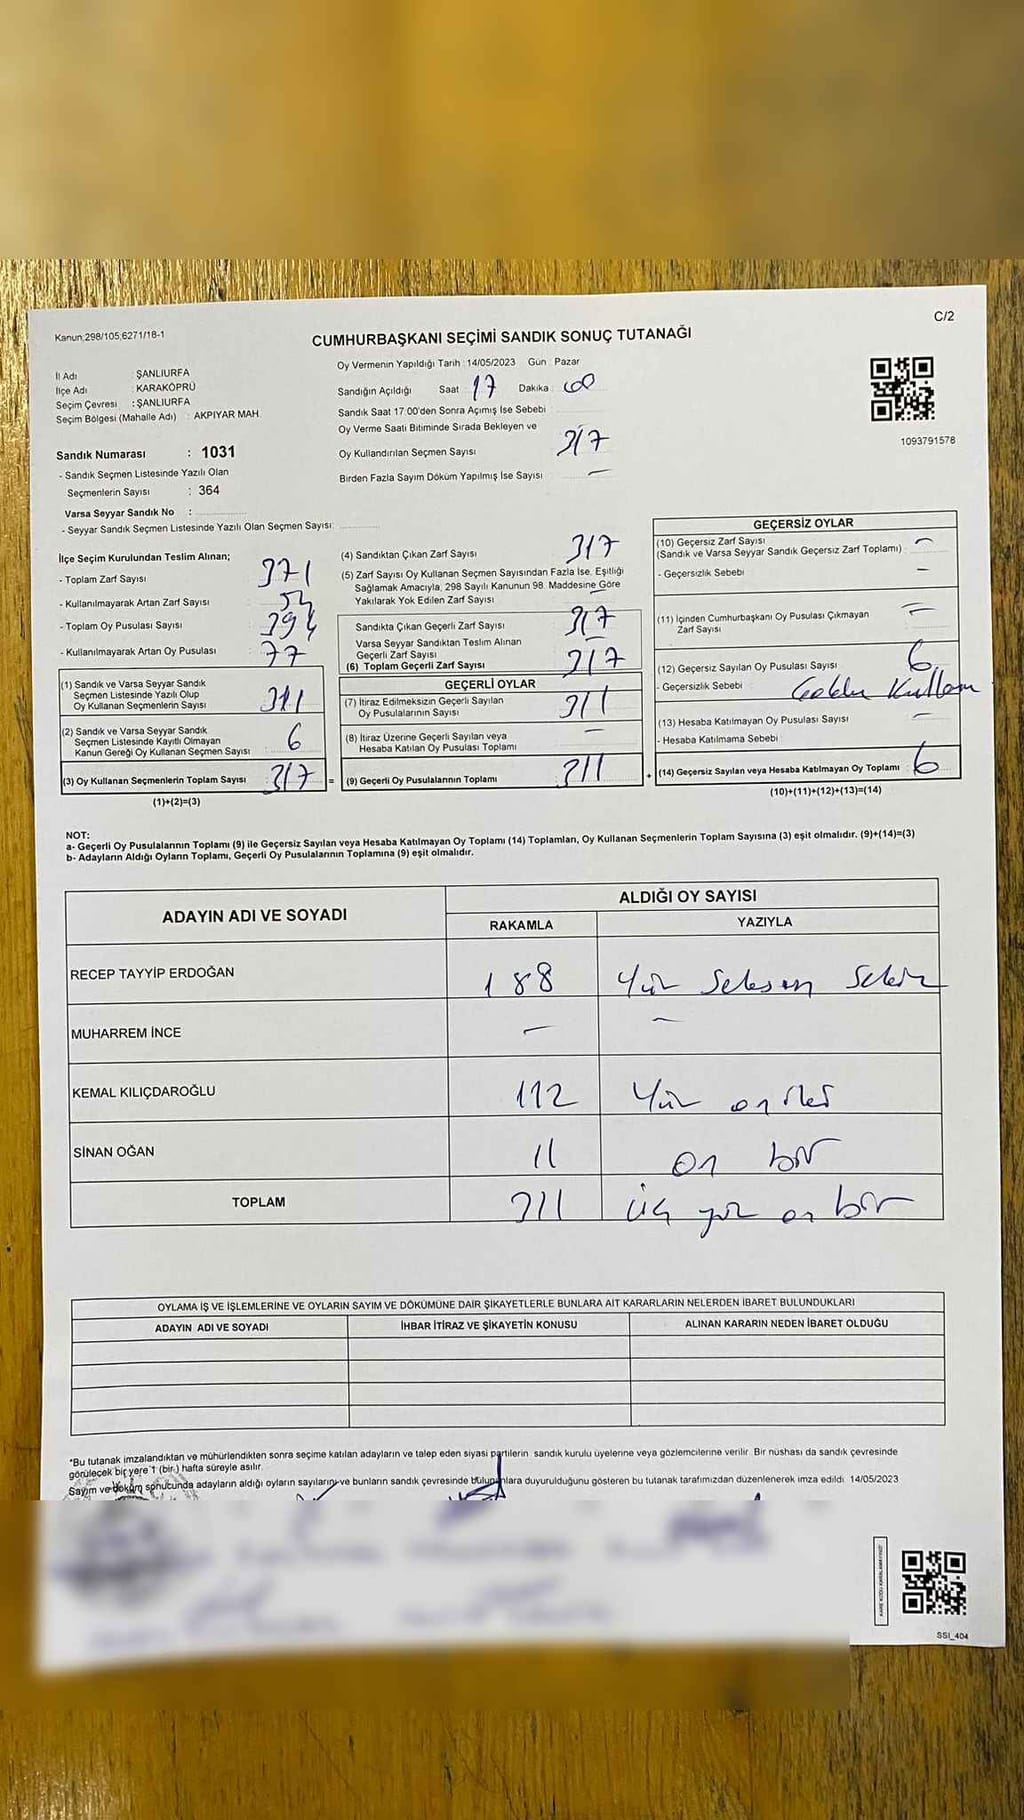 C/2
Kanun:298/105,6271/18-1
CUMHURBAŞKANI SEÇİMİ SANDIK SONUÇ TUTANAĞI
İl Adı : ŞANLIURFA
İlçe Adı : KARAKÖPRÜ
Seçim Çevresi : ŞANLIURFA
Seçim Bölgesi (Mahalle Adı) : AKPIYAR MAH.
Sandık Numarası : 1031
- Sandık Seçmen Listesinde Yazılı Olan
Seçmenlerin Sayısı : 364
Varsa Seyyar Sandık No :
- Seyyar Sandık Seçmen Listesinde Yazılı Olan Seçmen Sayısı:
Oy Vermenin Yapıldığı Tarih : 14/05/2023 Gün : Pazar
Sandığın Açıldığı Saat : 17 Dakika : 00
Sandık Saat 17:00'den Sonra Açımış İse Sebebi
Oy Verme Saati Bitiminde Sırada Bekleyen ve
Oy Kullandırılan Seçmen Sayısı 317
Birden Fazla Sayım Döküm Yapılmış İse Sayısı : —
1093791578
İlçe Seçim Kurulundan Teslim Alınan;
- Toplam Zarf Sayısı 371
- Kullanılmayarak Artan Zarf Sayısı 54
- Toplam Oy Pusulası Sayısı 394
- Kullanılmayarak Artan Oy Pusulası 77
(1) Sandık ve Varsa Seyyar Sandık
Seçmen Listesinde Yazılı Olup
Oy Kullanan Seçmenlerin Sayısı 311
(2) Sandık ve Varsa Seyyar Sandık
Seçmen Listesinde Kayıtlı Olmayan
Kanun Gereği Oy Kullanan Seçmen Sayısı 6
(3) Oy Kullanan Seçmenlerin Toplam Sayısı 317 =
(1)+(2)=(3)
(4) Sandıktan Çıkan Zarf Sayısı 317
(5) Zarf Sayısı Oy Kullanan Seçmen Sayısından Fazla İse. Eşitliği
Sağlamak Amacıyla, 298 Sayılı Kanunun 98. Maddesine Göre
Yakılarak Yok Edilen Zarf Sayısı —
Sandıkta Çıkan Geçerli Zarf Sayısı 317
Varsa Seyyar Sandıktan Teslim Alınan
Geçerli Zarf Sayısı —
(6) Toplam Geçerli Zarf Sayısı 317
GEÇERLİ OYLAR
(7) İtiraz Edilmeksizin Geçerli Sayılan
Oy Pusulalarının Sayısı 311
(8) İtiraz Üzerine Geçerli Sayılan veya
Hesaba Katılan Oy Pusulası Toplamı —
(9) Geçerli Oy Pusulalarının Toplamı 311 +
GEÇERSİZ OYLAR
(10) Geçersiz Zarf Sayısı
(Sandık ve Varsa Seyyar Sandık Geçersiz Zarf Toplamı) : —
- Geçersizlik Sebebi : —
(11) İçinden Cumhurbaşkanı Oy Pusulası Çıkmayan
Zarf Sayısı : —
(12) Geçersiz Sayılan Oy Pusulası Sayısı : 6
- Geçersizlik Sebebi :
(13) Hesaba Katılmayan Oy Pusulası Sayısı : —
- Hesaba Katılmama Sebebi :
(14) Geçersiz Sayılan veya Hesaba Katılmayan Oy Toplamı : 6
(10)+(11)+(12)+(13)=(14)
NOT:
a- Geçerli Oy Pusulalarının Toplamı (9) ile Geçersiz Sayılan veya Hesaba Katılmayan Oy Toplamı (14) Toplamları, Oy Kullanan Seçmenlerin Toplam Sayısına (3) eşit olmalıdır. (9)+(14)=(3)
b- Adayların Aldığı Oyların Toplamı, Geçerli Oy Pusulalarının Toplamına (9) eşit olmalıdır.
ADAYIN ADI VE SOYADI
ALDIĞI OY SAYISI
RAKAMLA YAZIYLA
RECEP TAYYİP ERDOĞAN 188 Yüz Seksen Sekiz
MUHARREM İNCE — —
KEMAL KILIÇDAROĞLU 112 Yüz on iki
SİNAN OĞAN 11 on bir
TOPLAM 311 Üç yüz on bir
OYLAMA İŞ VE İŞLEMLERİNE VE OYLARIN SAYIM VE DÖKÜMÜNE DAİR ŞİKAYETLERLE BUNLARA AİT KARARLARIN NELERDEN İBARET BULUNDUKLARI
ADAYIN ADI VE SOYADI İHBAR İTİRAZ VE ŞİKAYETİN KONUSU ALINAN KARARIN NEDEN İBARET OLDUĞU
*Bu tutanak imzalandıktan ve mühürlendikten sonra seçime katılan adayların ve talep eden siyasi partilerin sandık kurulu üyelerine veya gözlemcilerine verilir. Bir nüshası da sandık çevresinde
görülecek bir yere 1 (bir.) hafta süreyle asılır.
Sayım ve döküm sonucunda adayların aldığı oyların sayılarını ve bunların sandık çevresinde bulunanlara duyurulduğunu gösteren bu tutanak tarafımızdan düzenlenerek imza edildi. 14/05/2023
SSI_404